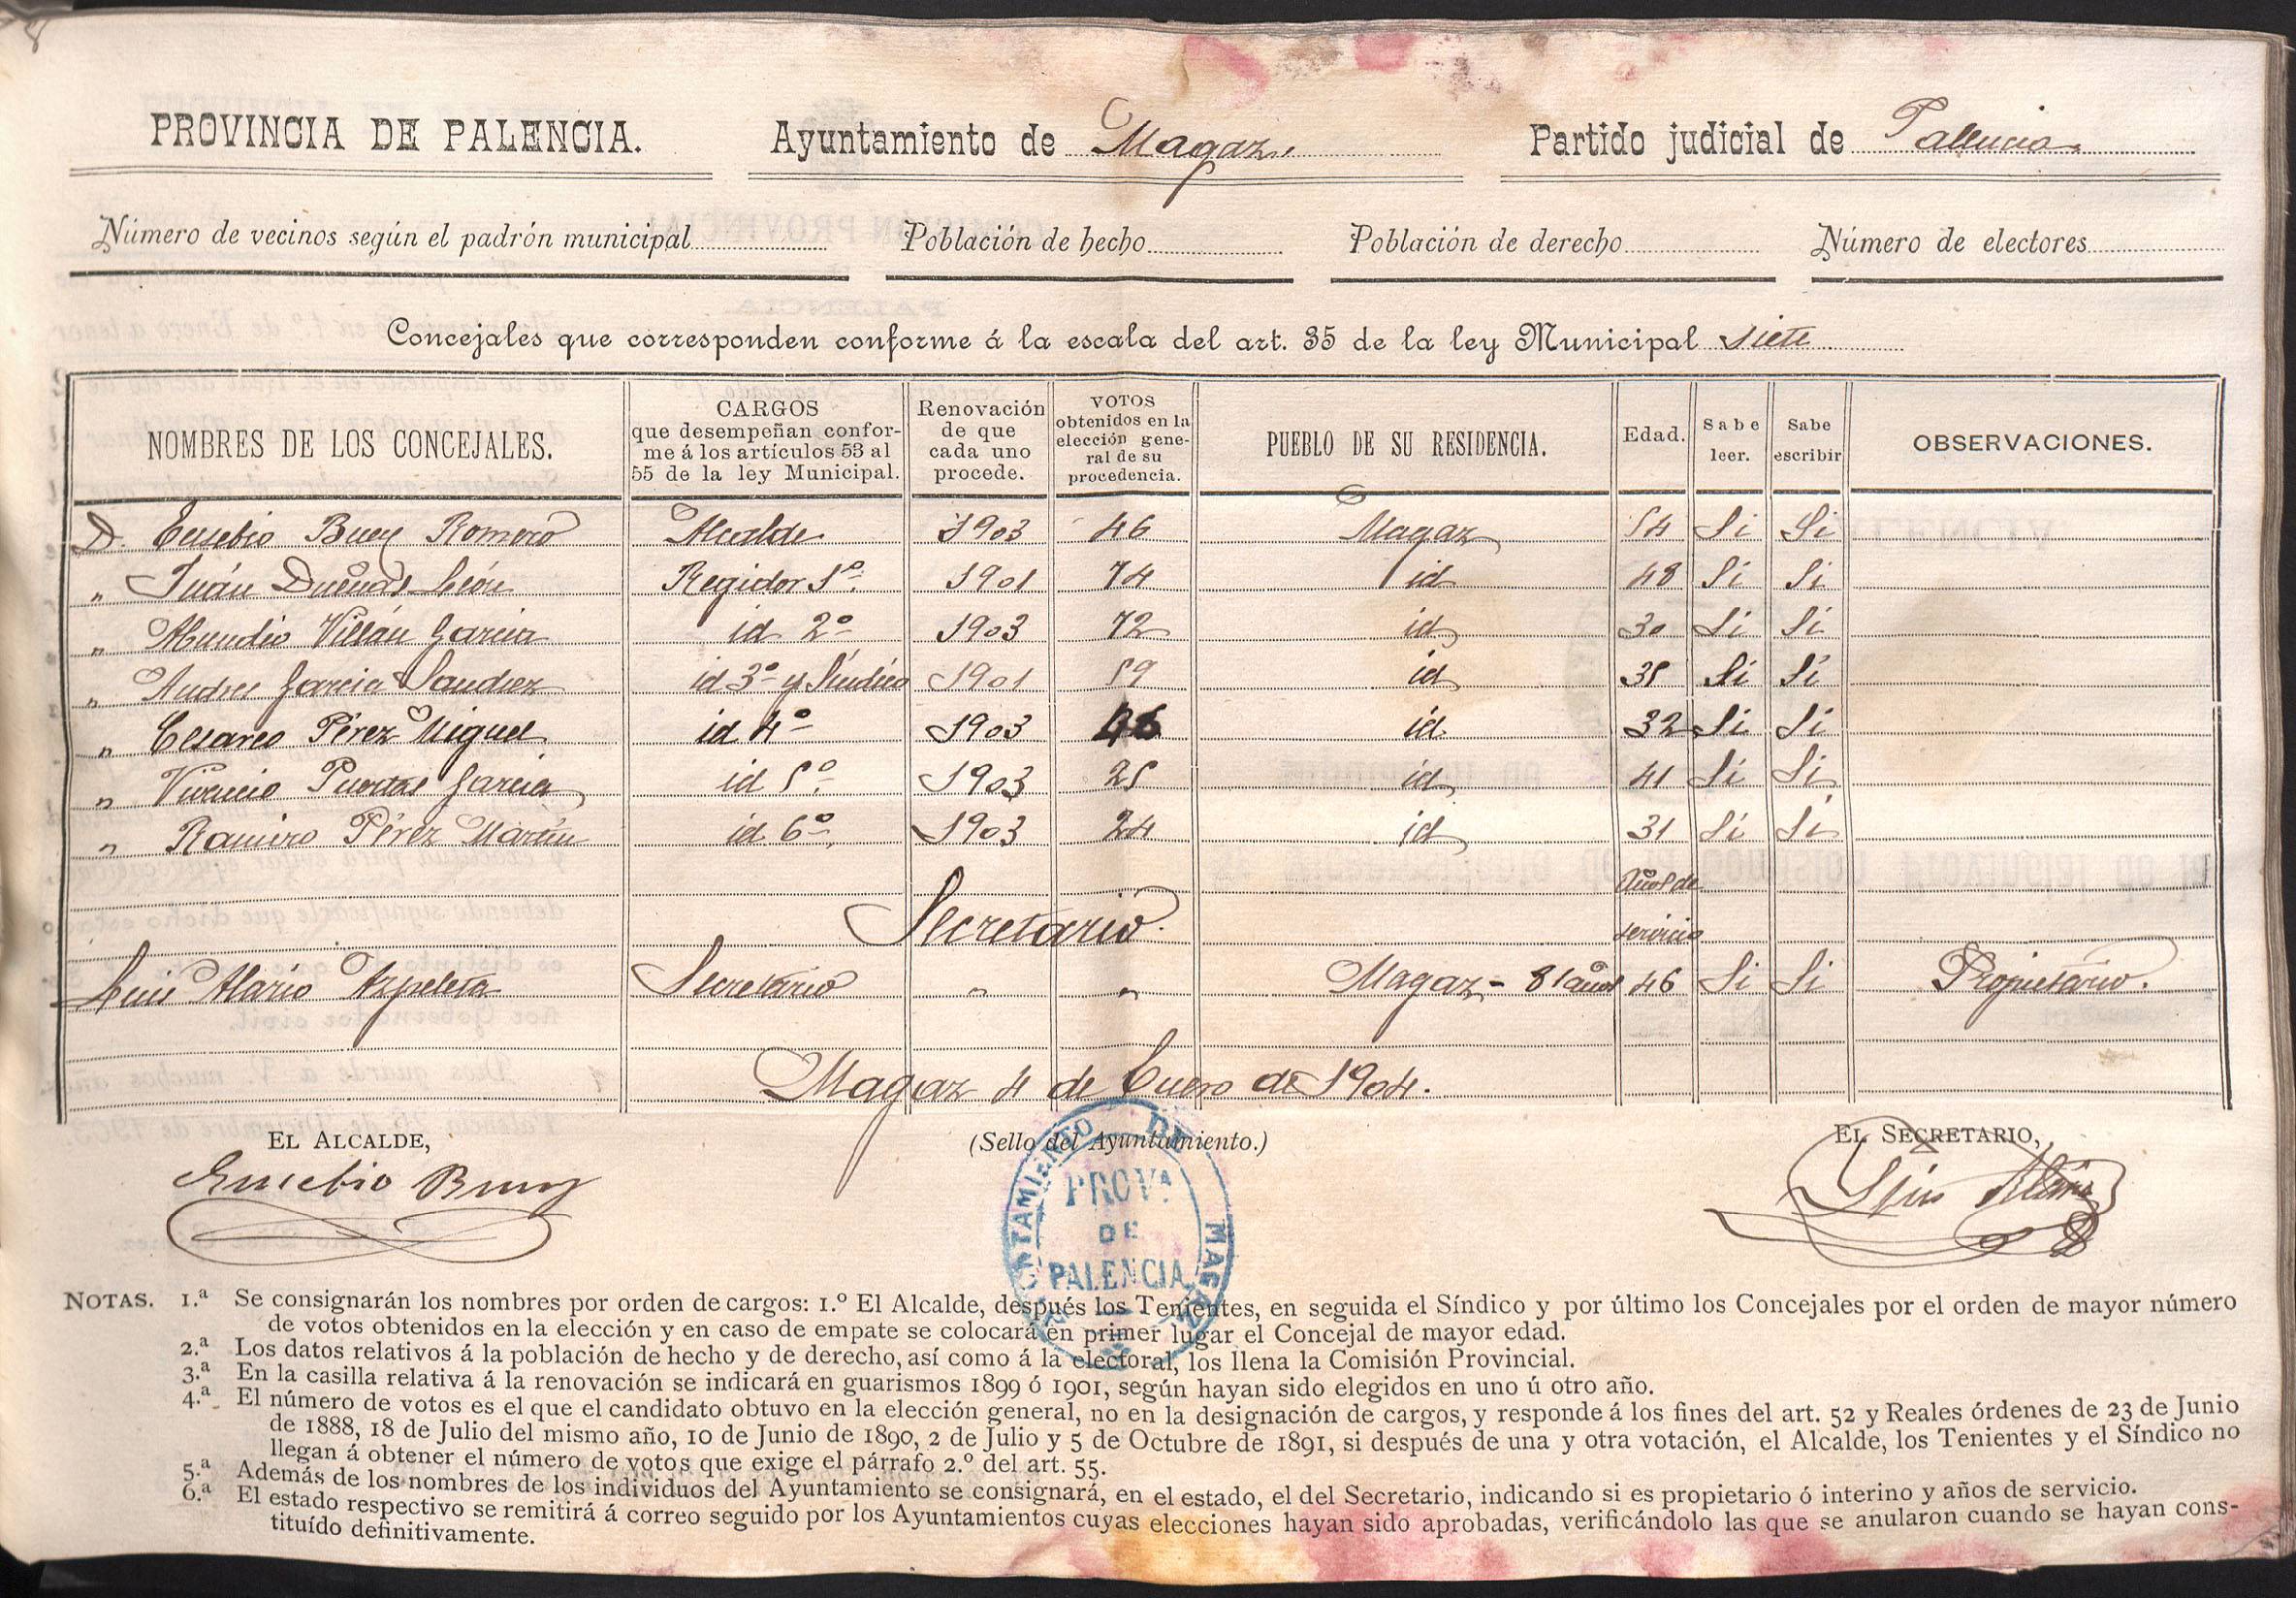 PROVINCIA DE PALENCIA. Ayuntamiento de Magaz. Partido judicial de Palencia.
Número de vecinos según el padrón municipal Población de hecho Población de derecho Número de electores
Concejales que corresponden conforme á la escala del art. 35 de la ley Municipal siete
NOMBRES DE LOS CONCEJALES. CARGOS que desempeñan confor-me á los artículos 53 al 55 de la ley Municipal. Renovación de que cada uno procede. VOTOS obtenidos en la elección gene-ral de su procedencia. PUEBLO DE SU RESIDENCIA. Edad. Sabe leer. Sabe escribir OBSERVACIONES.
D. Eusebio Buey Romero Alcalde 1903 46 Magaz 54 Si Si
" Juán Dueñas León Regidor 1º. 1901 74 id 48 Si Si
" Abundio Villán Garcia id 2º 1903 72 id 30 Si Si
" Andres Garcia Sandrez id 3º y Síndico 1901 59 id 35 Si Si
" Cesareo Pérez Miguel id 4º 1903 id 32 Si Si
" Vivencio Puertas Garcia id 5º. 1903 25 id 41 Si Si
" Ramiro Pérez Martín id 6º 1903 24 id 31 Si Si
Años de
Secretario. servicio
Luis Alario Azpeleta Secretario " " Magaz - años 46 Si Si Propietario.
Magaz 4 de Enero de 1904.
EL ALCALDE, (Sello del Ayuntamiento.) EL SECRETARIO,
Eusebio Buey Luis Alario
AYUNTAMIENTO DE MAGAZ
PROVª
DE
PALENCIA
NOTAS. 1.ª Se consignarán los nombres por orden de cargos: 1.º El Alcalde, después los Tenientes, en seguida el Síndico y por último los Concejales por el orden de mayor número
de votos obtenidos en la elección y en caso de empate se colocará en primer lugar el Concejal de mayor edad.
2.ª Los datos relativos á la población de hecho y de derecho, así como á la electoral, los llena la Comisión Provincial.
3.ª En la casilla relativa á la renovación se indicará en guarismos 1899 ó 1901, según hayan sido elegidos en uno ú otro año.
4.ª El número de votos es el que el candidato obtuvo en la elección general, no en la designación de cargos, y responde á los fines del art. 52 y Reales órdenes de 23 de Junio
de 1888, 18 de Julio del mismo año, 10 de Junio de 1890, 2 de Julio y 5 de Octubre de 1891, si después de una y otra votación, el Alcalde, los Tenientes y el Síndico no
llegan á obtener el número de votos que exige el párrafo 2.º del art. 55.
5.ª Además de los nombres de los individuos del Ayuntamiento se consignará, en el estado, el del Secretario, indicando si es propietario ó interino y años de servicio.
6.ª El estado respectivo se remitirá á correo seguido por los Ayuntamientos cuyas elecciones hayan sido aprobadas, verificándolo las que se anularon cuando se hayan cons-
tituído definitivamente.